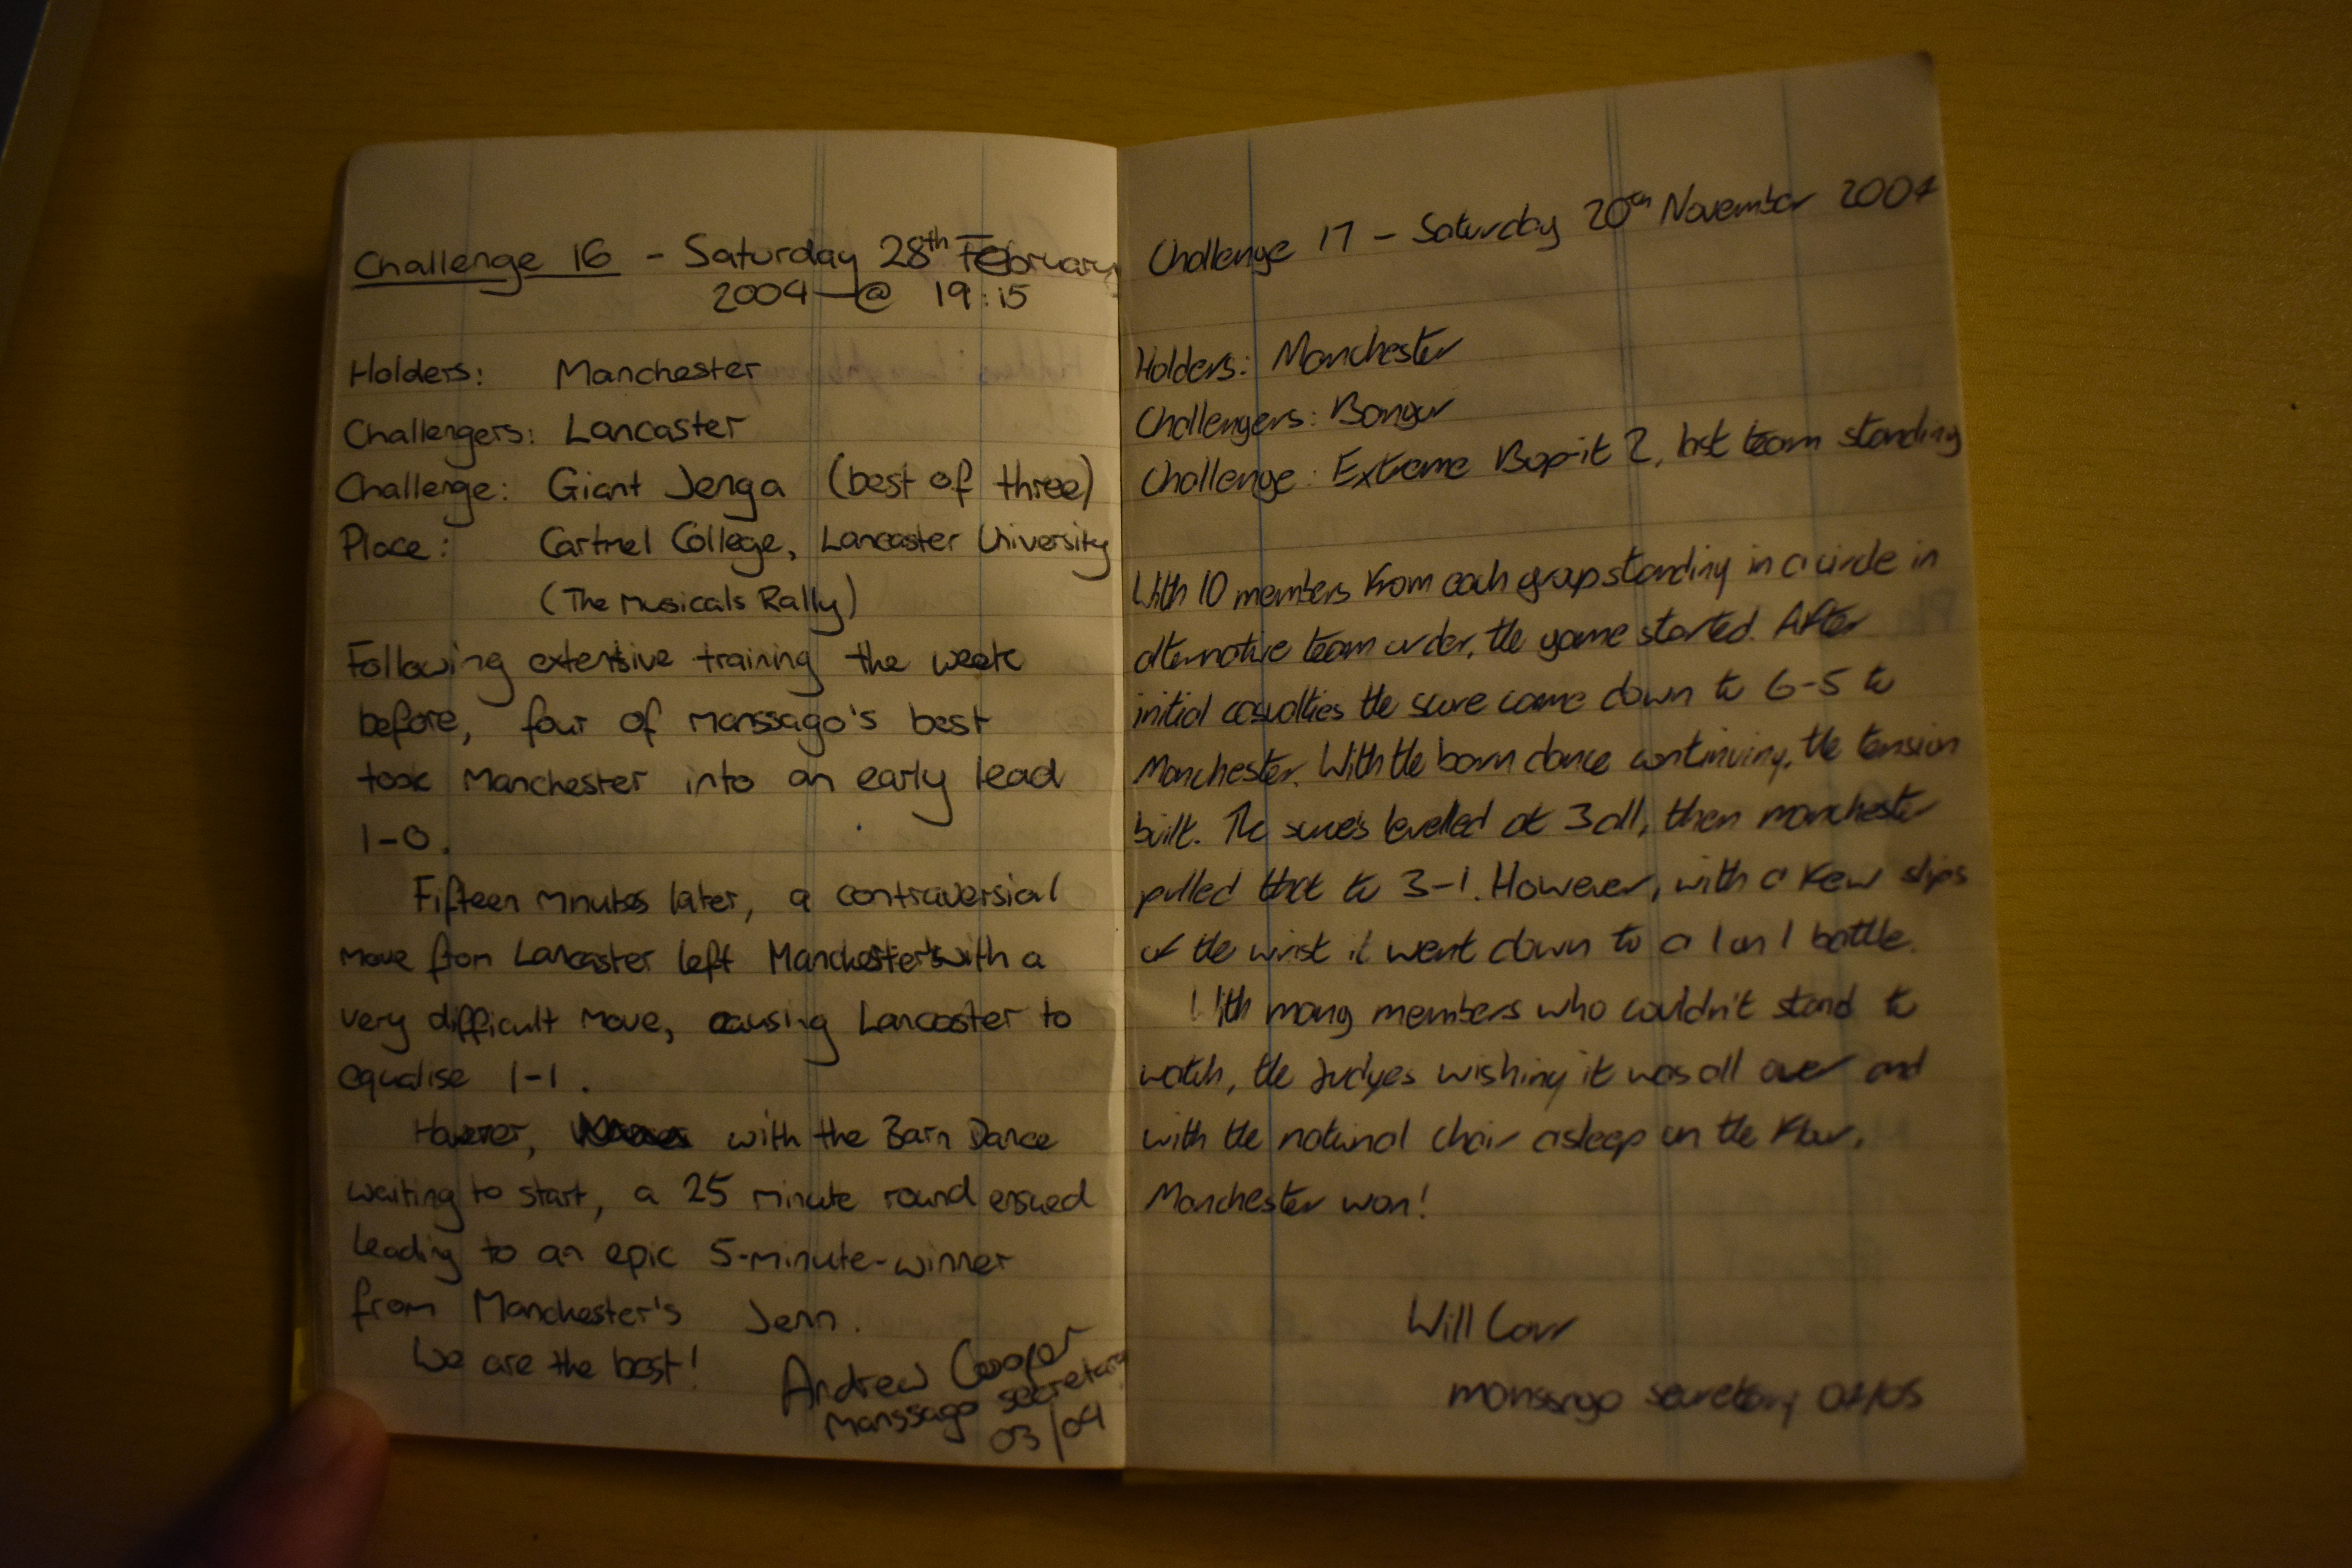 Challenge 16 - Saturday 28th February
2004 @ 19:15
Holders: Manchester
Challengers: Lancaster
Challenge: Giant Jenga (best of three)
Place: Cartmel College, Lancaster University
(The Musicals Rally)
Following extensive training the week
before, four of manssago's best
took Manchester into an early lead
1-0.
Fifteen minutes later, a contraversial
move from Lancaster left Manchester with a
very difficult move, causing Lancaster to
equalise 1-1.
However, with the Barn Dance
waiting to start, a 25 minute round ensued
leading to an epic 5-minute-winner
from Manchester's Jenn.
We are the best!
Andrew Cooper
Manssago secretary
03/04
Challenge 17 - Saturday 20th November 2004
Holders: Manchester
Challengers: Bangor
Challenge: Extreme Bop-it 2, last team standing
With 10 members from each group standing in a circle in
alternative team order, the game started. After
initial casualties the score came down to 6-5 to
Manchester. With the barn dance continuing, the tension
built. The scores levelled at 3 all, then manchester
pulled that to 3-1. However, with a few slips
of the wrist it went down to a 1 on 1 battle.
With many members who couldn't stand to
watch, the judges wishing it was all over and
with the national chair asleep on the floor,
Manchester won!
Will Carr
manssago secretary 04/05